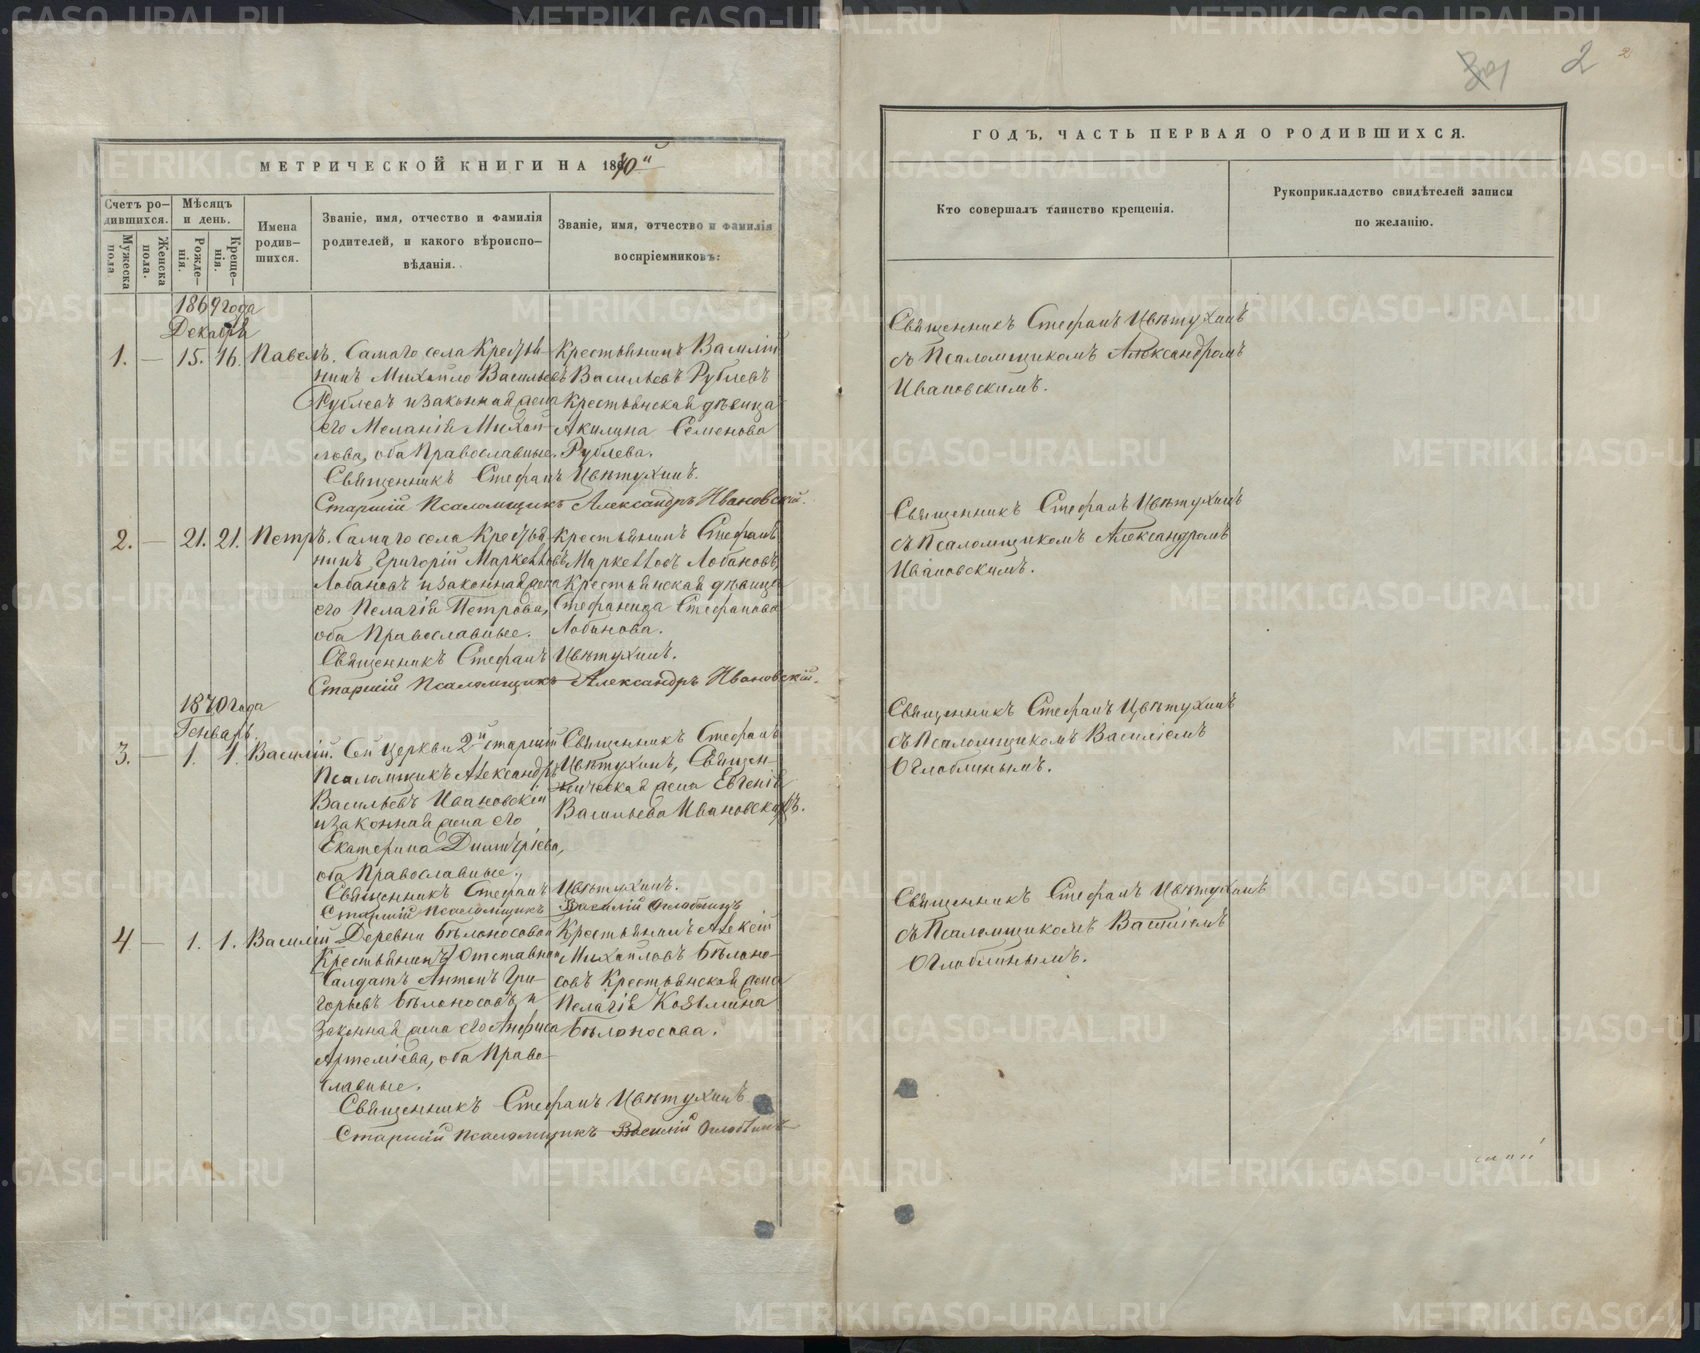 МЕТРИЧЕСКОЙ КНИГИ НА 1870й
Счетъ родившихся.
Мѣсяцъ и день.
Имена родившихся.
Званіе, имя, отчество и фамилія родителей, и какого вѣроисповѣданія.
Званіе, имя, отчество и фамилія воспріемниковъ:
Мужеска пола
Женска пола.
Рожденія.
Крещенія.
1869 года
Декабрь
1. — 15. 16. Павелъ.
Самаго села Кресть-
нинъ Михайло Васильевъ
Рублевъ и законная жена
его Меланія Михай-
лова, оба Православные.
Крестьянинъ Василій
Васильевъ Рублевъ
Крестьянская дѣвица
Акилина Семенова
Рублева.
Священникъ Стефанъ Цвѣтухинъ.
Старшій Псаломщикъ Александръ Ивановскій.
2. — 21. 21. Петръ.
Самаго села Крестья-
нинъ Григорій Маркелловъ
Лобановъ и законная жена
его Пелагія Петрова,
оба Православные.
Крестьянинъ Стефанъ
Маркелловъ Лобановъ,
Крестьянская дѣвица
Стефанида Стефанова
Лобанова.
Священникъ Стефанъ Цвѣтухинъ.
Старшій Псаломщикъ Александръ Ивановскій.
1870 года
Генварь.
3. — 1. 1. Василій.
Сей Церкви 2й старшій
Псаломщикъ Александръ
Васильевъ Ивановскій
и законная жена его
Екатерина Димитріева,
оба Православные.
Священникъ Стефанъ
Цвѣтухинъ, Священ-
ническая жена Евгенія
Васильева Ивановская.
Священникъ Стефанъ Цвѣтухинъ.
Старшій Псаломщикъ Василій Оглоблинъ
4. — 1. 1. Василій
Деревни Бѣлоносовой
Крестьянинъ Отставной
Салдатъ Антонъ Гри-
горьевъ Бѣлоносовъ и
Законная жена его Анфиса
Артеміева, оба Право-
славные.
Крестьянинъ Алексій
Михайловъ Бѣлоно-
совъ Крестьянская жена
Пелагія Козьмина
Бѣлоносова.
Священникъ Стефанъ Цвѣтухинъ
Старшій Псаломщикъ Василій Оглоблинъ
2
2
ГОДЪ, ЧАСТЬ ПЕРВАЯ О РОДИВШИХСЯ.
Кто совершалъ таинство крещенія.
Рукоприкладство свидѣтелей записи
по желанію.
Священникъ Стефанъ Цвѣтухинъ
съ Псаломщикомъ Александромъ
Ивановскимъ.
Священникъ Стефанъ Цвѣтухинъ
съ Псаломщикомъ Александромъ
Ивановскимъ.
Священникъ Стефанъ Цвѣтухинъ
съ Псаломщикомъ Василіемъ
Оглоблинымъ.
Священникъ Стефанъ Цвѣтухинъ
съ Псаломщикомъ Василіемъ
Оглоблинымъ.
METRIKI.GASO-URAL.RU